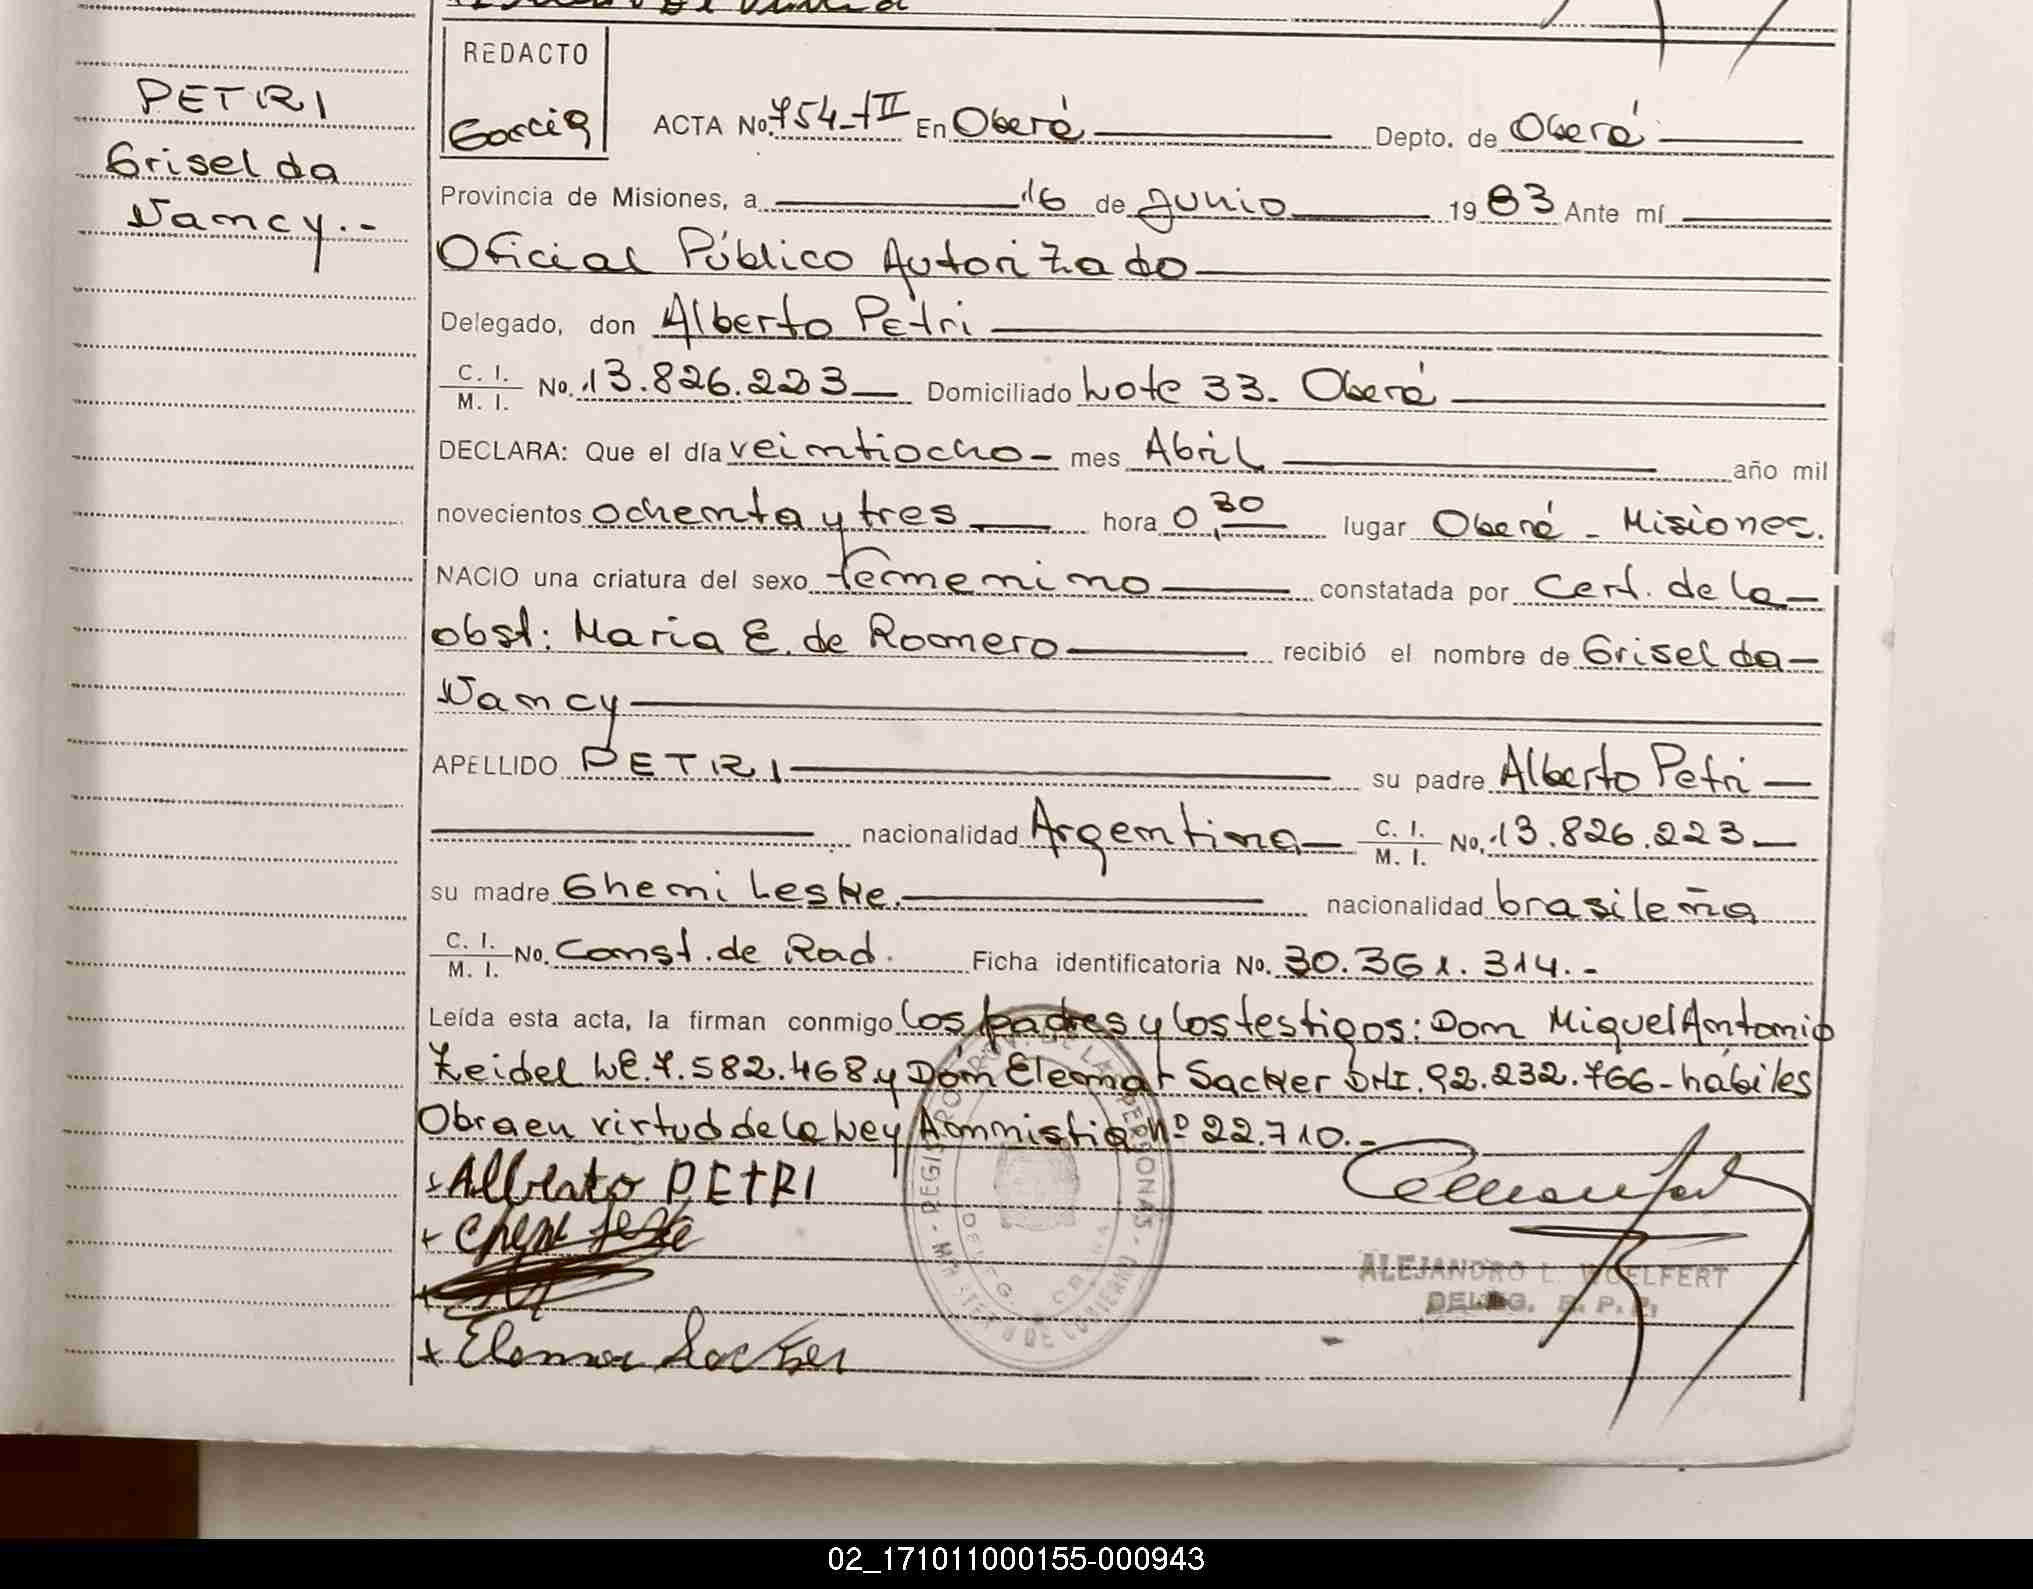 PETRI
Griselda
Nancy.-
REDACTO
Garcia
ACTA No. 754-tII En Oberá Depto. de Oberá
Provincia de Misiones, a 16 de Junio 1983 Ante mí
Oficial Público Autorizado
Delegado, don Alberto Petri
C. I. / M. I. No. 13.826.223 Domiciliado Lote 33. Oberá
DECLARA: Que el día veintiocho - mes Abril año mil
novecientos ochenta y tres hora 0,30 lugar Oberá - Misiones.
NACIO una criatura del sexo femenino constatada por Cert. de la
obst: Maria E. de Romero recibió el nombre de Griselda
Nancy
APELLIDO PETRI su padre Alberto Petri
nacionalidad Argentina C. I. / M. I. No. 13.826.223
su madre Gheni Leske. nacionalidad brasileña
C. I. / M. I. No. Const. de Rad. Ficha identificatoria No. 30.361.314.-
Leída esta acta, la firman conmigo los padres y los testigos: Don Miguel Antonio
Zeidel LE.7.582.468 y Don Elemar Sacker DNI.92.232.766 - hábiles
Obra en virtud de la Ley Amnistia Nº 22.710.-
Alberto PETRI
Leske
Elemar Sacker
REGISTRO PROV. DE LAS PERSONAS - MINISTERIO DE GOBIERNO
DELEG. OBERA
ALEJANDRO L. WOELFERT
DELEG. R. P. P.
02_171011000155-000943